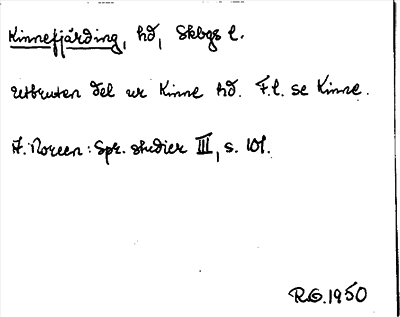 Kinnefjärding, hd, Skbgs l.
Utbruten del ur Kinne hd. F.l. se Kinne.
A. Noreen: Spr. studier III, s. 101.
R.G. 1950